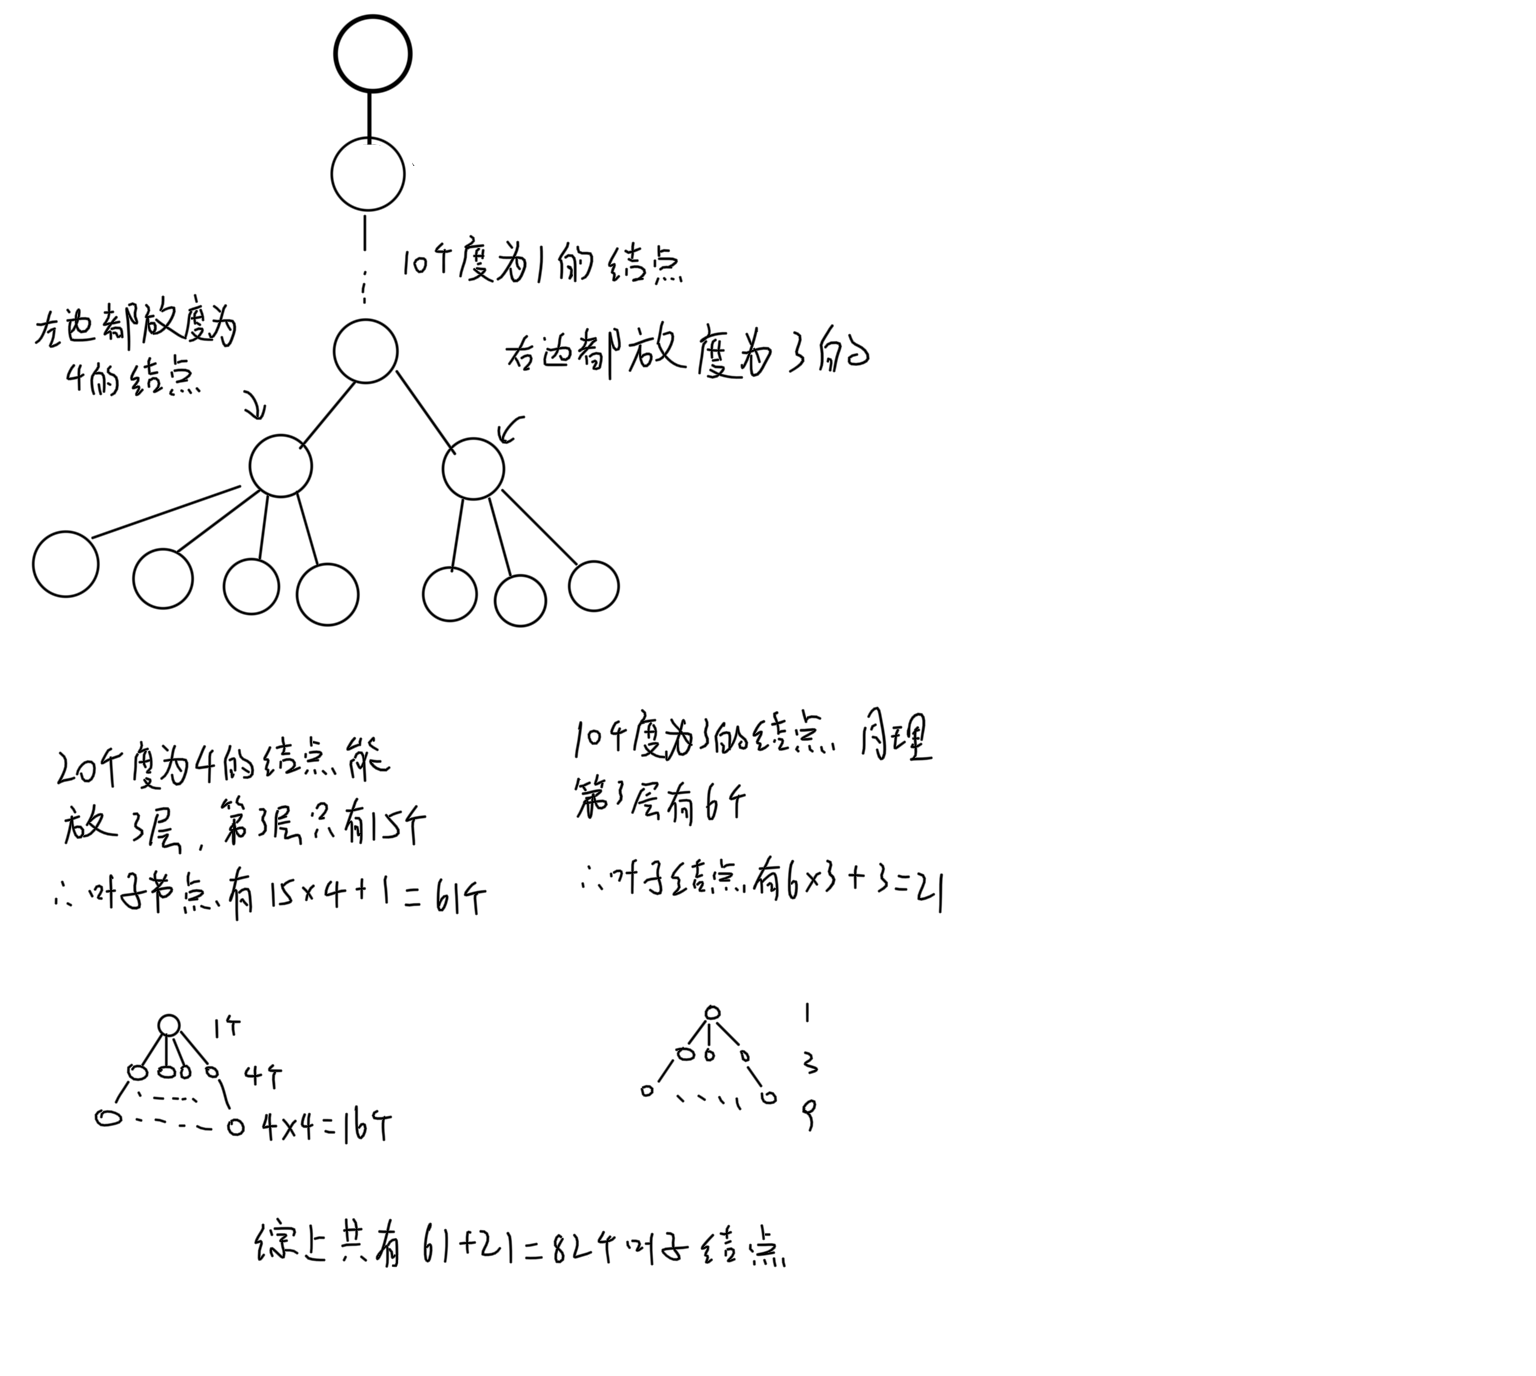 10个度为1的结点
左边都放度为
4的结点
右边都放度为3的
20个度为4的结点能
放3层,第3层只有15个
∴叶子节点有15×4+1=61个
10个度为3的结点同理
第3层有6个
∴叶子结点有6×3+3=21
1个
4个
4×4=16个
1
3
9
综上共有61+21=82个叶子结点